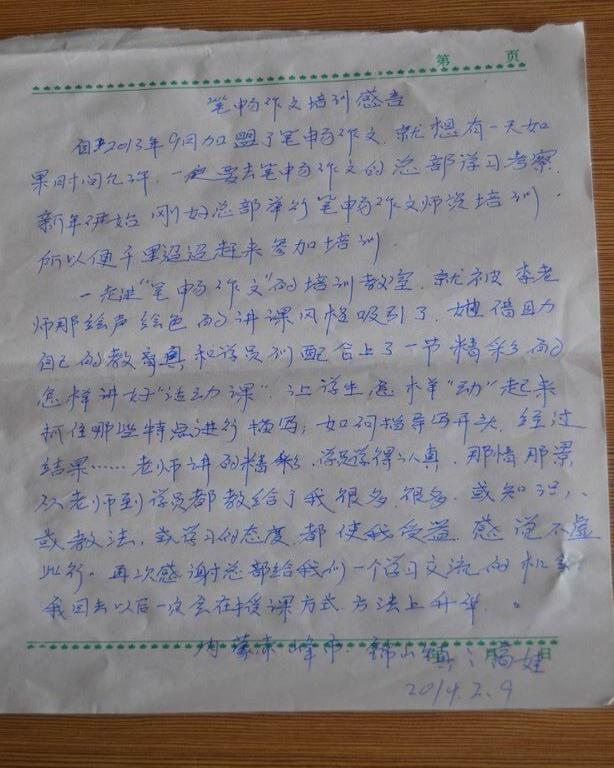 第 页
笔畅作文培训感言
自从2013年9月加盟了笔畅作文,就想有一天如
果时间允许,一定要去笔畅作文的总部学习考察,
新年开始刚好总部举行笔畅作文师资培训
所以便千里迢迢赶来参加培训.
一走进“笔畅作文”的培训教室,就被李老
师那绘声绘色的讲课风格吸引了,她借助
自己的教案和学员们配合上了一节精彩的
怎样讲好“活动课”.让学生怎样“动”起来
抓住哪些特点进行描写;如何指导写开头,经过
结果……老师讲的精彩,学员学得认真,那情那景
从老师到学员都教给了我很多,很多,或知识,
或教法,或学习的态度,都使我受益,感觉不虚
此行。再次感谢总部给我们一个学习交流的机会
我回去以后一定会在授课方式,方法上升华.
内蒙赤峰市 锦山镇:高娃
月 日
2014.2.9